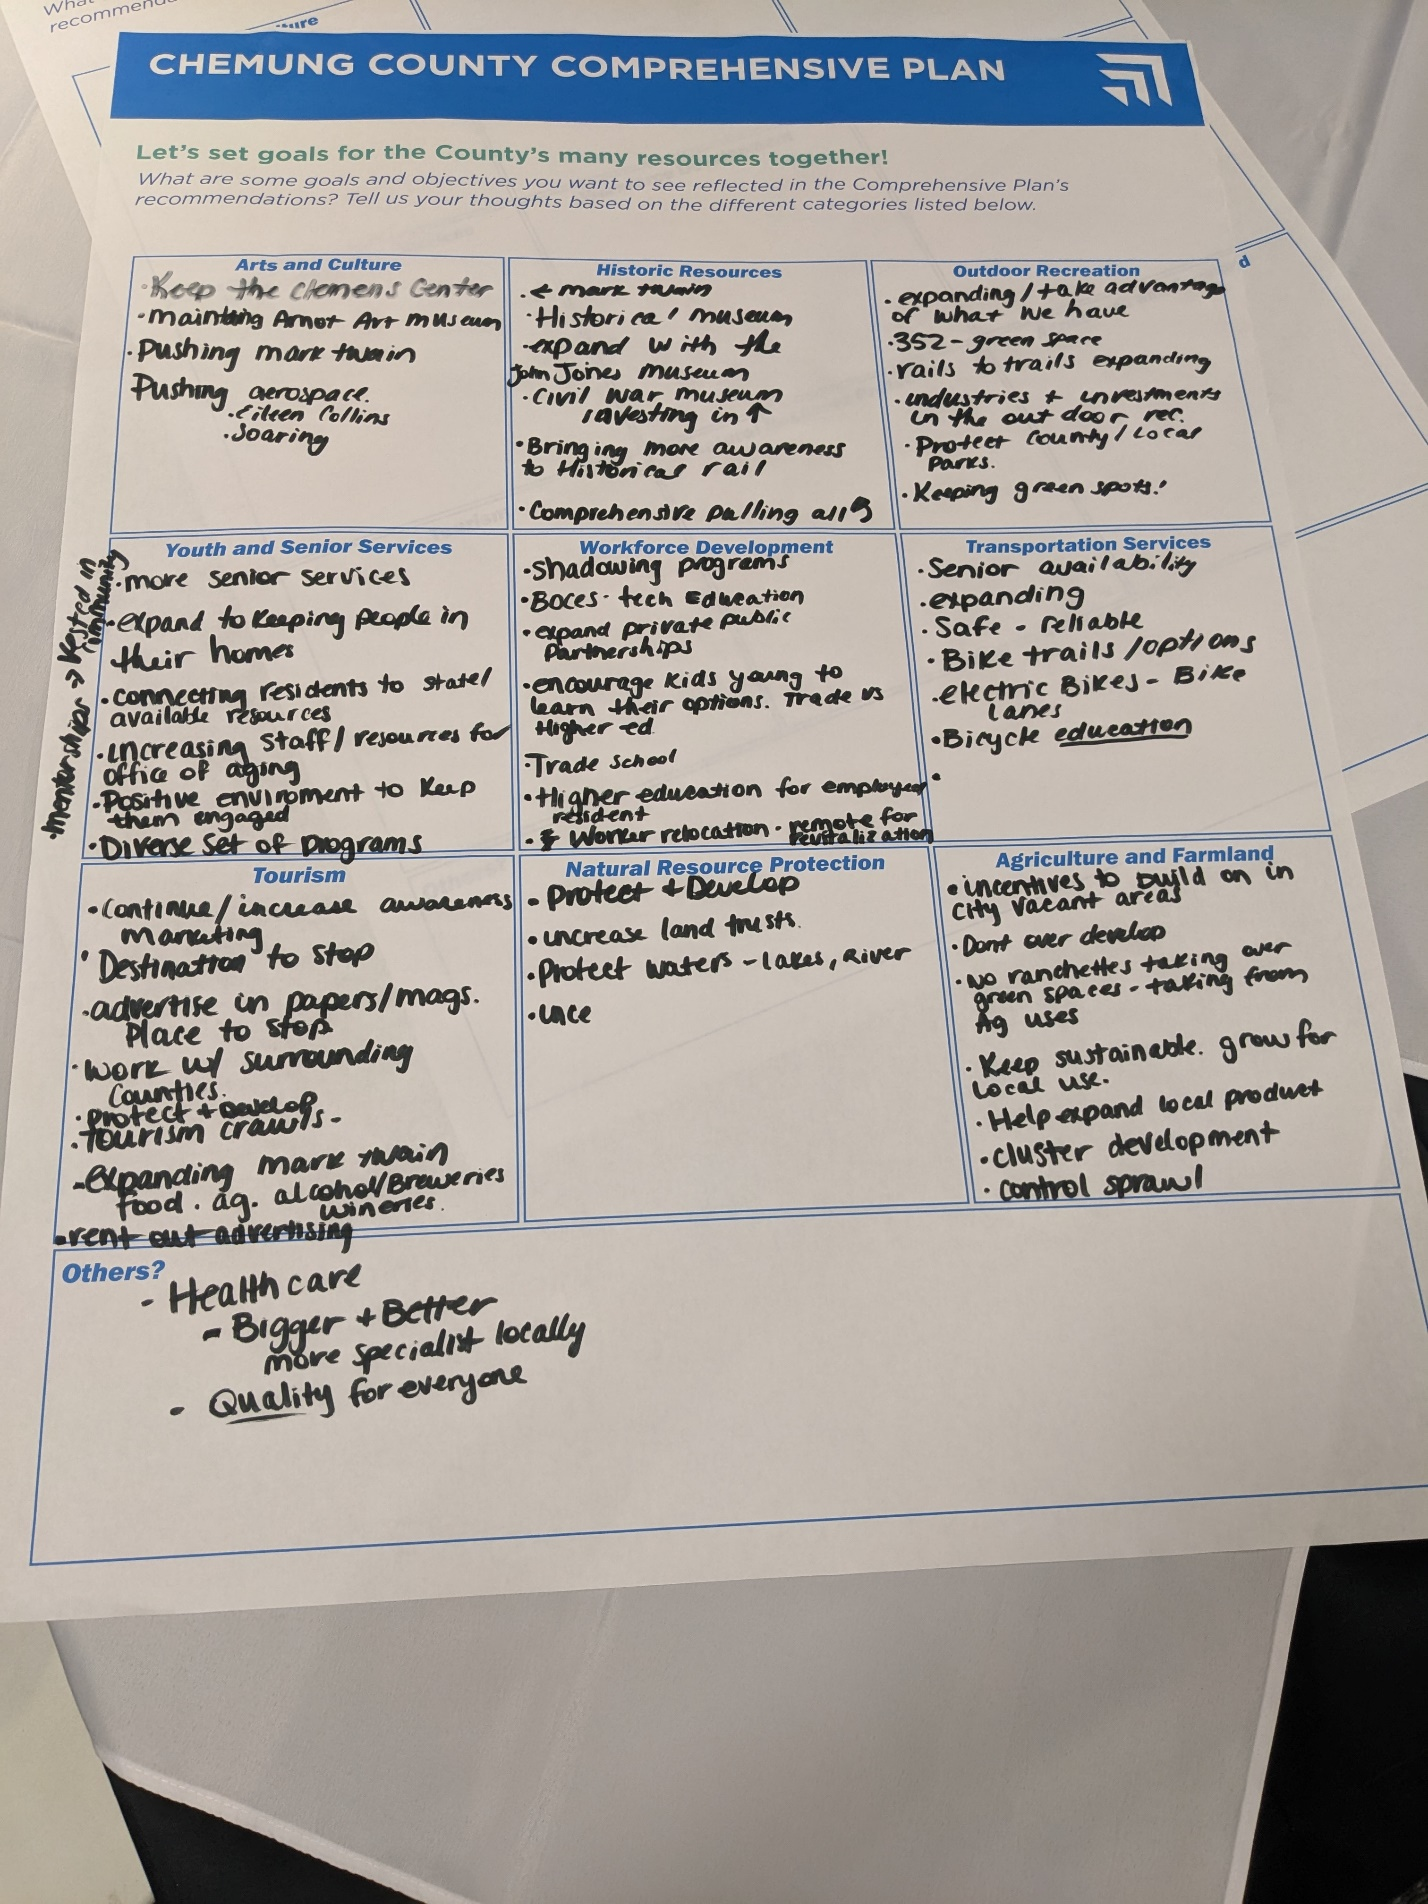 What
recommend
ure
CHEMUNG COUNTY COMPREHENSIVE PLAN
Let's set goals for the County's many resources together!
What are some goals and objectives you want to see reflected in the Comprehensive Plan's
recommendations? Tell us your thoughts based on the different categories listed below.
d
Arts and Culture
· Keep the Clemens Center
· Arnot Art museum
· Pushing mark twain
Pushing aerospace.
· Eileen Collins
· Soaring
Historic Resources
· ← mark twain
· Historical museum
· expand with the
John Jones museum
· Civil war museum
investing in ↑
· Bringing more awareness
to Historical rail
· Comprehensive pulling all
Outdoor Recreation
· expanding / take advantage
of what we have
· 352 - green space
· rails to trails expanding
· industries + investments
in the out door rec.
· Protect county / Local
Parks.
· Keeping green spots!
Youth and Senior Services
· more senior services
· expand to keeping people in
their homes
· connecting residents to state/
available resources
· increasing staff / resources for
office of aging
· Positive enviroment to keep
them engaged
· Diverse set of programs
· mentorships →
in
community
Workforce Development
· shadowing programs
· Boces - tech Education
· expand private public
Partnerships
· encourage kids young to
learn their options. Trade vs
Higher ed.
· Trade school
· Higher education for employed
resident
· Worker relocation - remote for
revitalization
Transportation Services
· Senior availability
· expanding
· Safe - reliable
· Bike trails / options
· electric Bikes - Bike
lanes
· Bicycle education
·
Tourism
· continue / increase awareness
marketing
· Destination to stop
· advertise in papers/mags.
Place to stop
· work w/ surrounding
Counties.
· Protect + Develop
· Tourism crawls -
- expanding mark twain
food . ag. alcohol/Breweries
wineries.
· rent out advertising
Natural Resource Protection
· Protect + Develop
· increase land trusts.
· Protect waters - lakes, River
Agriculture and Farmland
· incentives to build on in
city vacant areas
· Dont over develop
· No ranchettes taking over
green spaces - taking from
Ag uses
· Keep sustainable. grow for
Local use.
· Help expand local product
· cluster development
· control sprawl
Others?
- Health care
- Bigger + Better
more specialist locally
- Quality for everyone